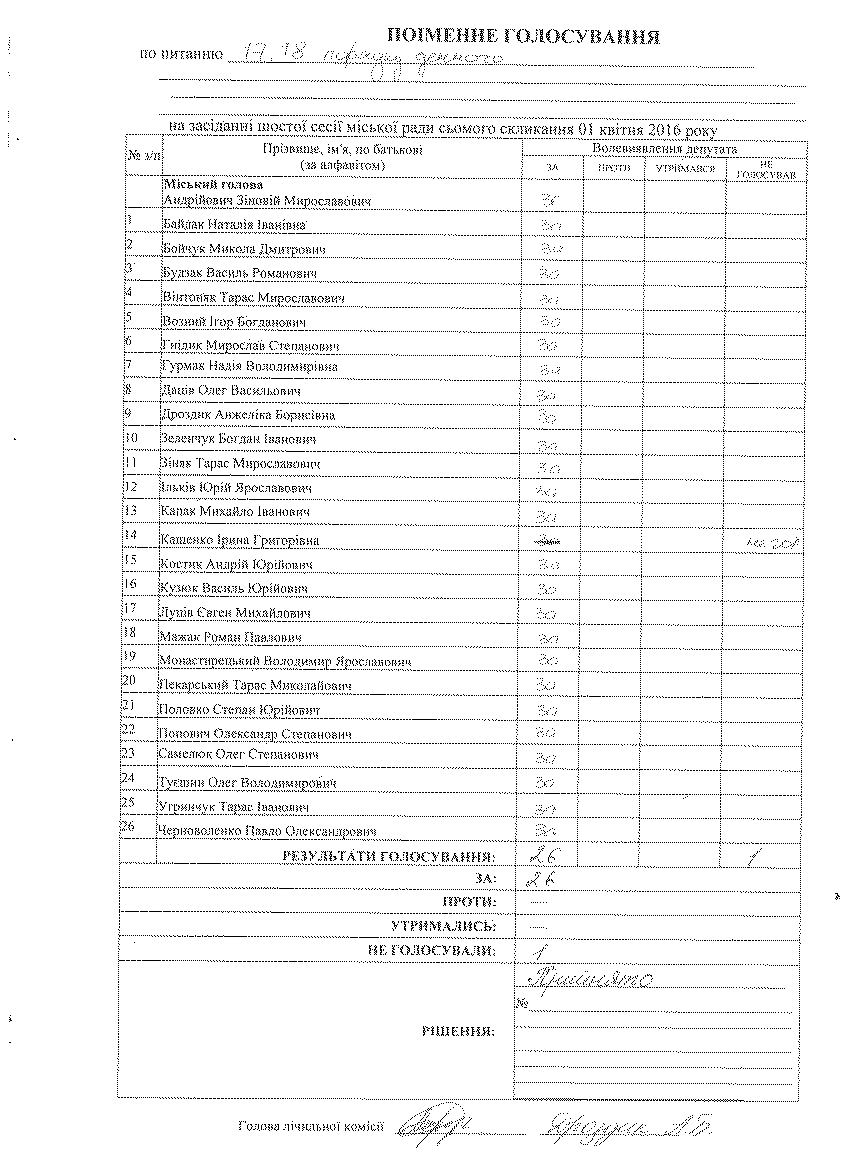 ПОІМЕННЕ ГОЛОСУВАННЯ
по питанню 17, 18 порядку денного
на засіданні шостої сесії міської ради сьомого скликання 01 квітня 2016 року
№ з/п Прізвище, ім'я, по батькові (за алфавітом) Волевиявлення депутата
ЗА ПРОТИ УТРИМАВСЯ НЕ ГОЛОСУВАВ
Міський голова
Андрійович Зіновій Мирославович За
1 Байдак Наталія Іванівна За
2 Бойчук Микола Дмитрович За
3 Будзак Василь Романович За
4 Вінтоняк Тарас Мирославович За
5 Возний Ігор Богданович За
6 Гнідик Мирослав Степанович За
7 Гурмак Надія Володимирівна За
8 Даців Олег Васильович За
9 Дроздик Анжеліка Борисівна За
10 Зеленчук Богдан Іванович За
11 Зіняк Тарас Мирославович За
12 Ільків Юрій Ярославович За
13 Капак Михайло Іванович За
14 Кащенко Ірина Григорівна не гол
15 Костик Андрій Юрійович За
16 Кузюк Василь Юрійович За
17 Лупів Євген Михайлович За
18 Мажак Роман Павлович За
19 Монастирецький Володимир Ярославович За
20 Пекарський Тарас Миколайович За
21 Половко Степан Юрійович За
22 Попович Олександр Степанович За
23 Самелюк Олег Степанович За
24 Туєшин Олег Володимирович За
25 Угринчук Тарас Іванович За
26 Черноволенко Павло Олександрович За
РЕЗУЛЬТАТИ ГОЛОСУВАННЯ: 26 1
ЗА: 26
ПРОТИ: —
УТРИМАЛИСЬ: —
НЕ ГОЛОСУВАЛИ: 1
Прийнято
№
РІШЕННЯ:
Голова лічильної комісії Дроздик А.Б.